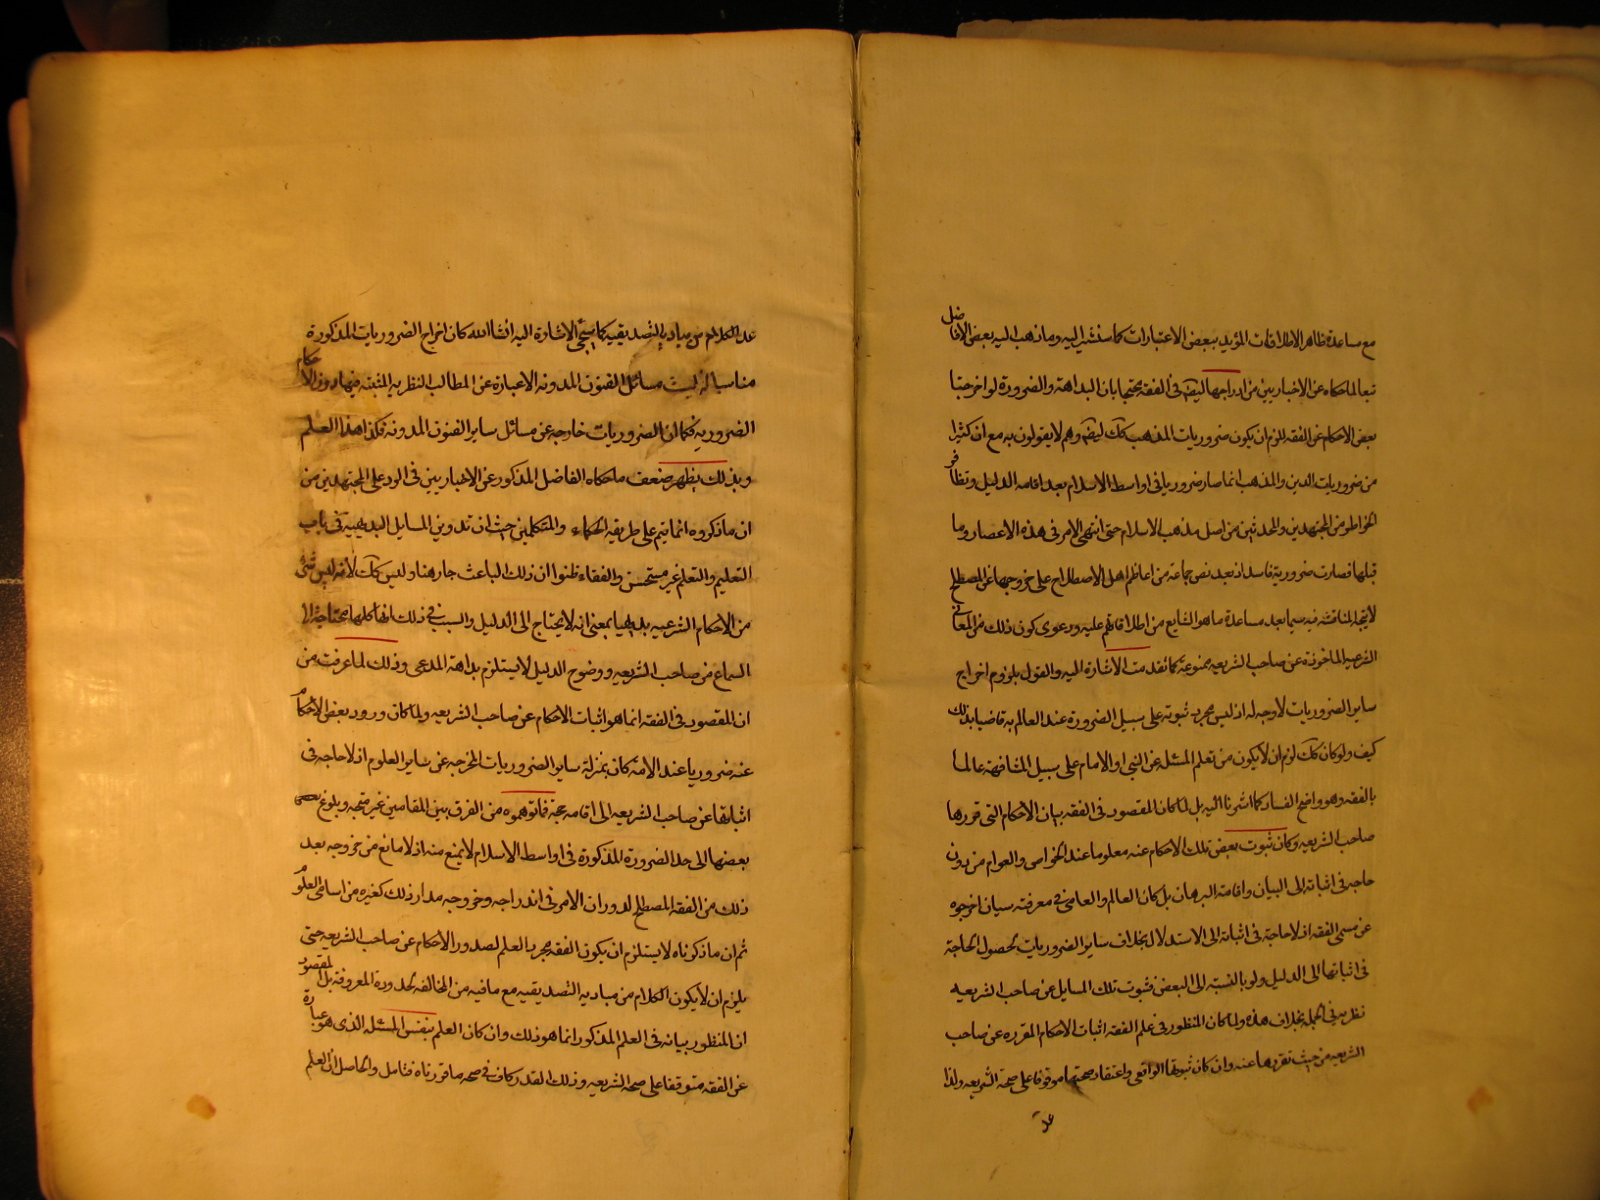 مع مساعدة ظاهر الاطلاقات المؤيد ببعض الاعتبارات كما سنشير اليه وما ذهب اليه بعض الافاضل
تبعا لما حكاه عن الاخباريين من ادراجها ايضا في الفقه محتجا بان البداهة والضرورة لو اخرجتا
بعض الاحكام عن الفقه للزم ان يكون ضروريات المذهب كك ايضا وهم لا يقولون به مع ان كثيرا
من ضروريات الدين والمذهب انما صار ضروريا في اواسط الاسلام بعد اقامه الدليل وتظافر
الخواطر من المجتهدين والمحدثين من اصل مذهب الاسلام حتى انتهى الامر في هذه الاعصار وما
قبلها فصارت ضرورية فاسد اذ بعد نص جماعة من اعاظم اهل الاصطلاح على خروجها عن المصطلح
لا يتجه المناقشه فيه سيما بعد مساعدة ما هو الشايع من اطلاقاتهم عليه ودعوى كون ذلك من المعاني
الشرعيه الماخوذة عن صاحب الشريعه ممنوعة كما تقدمت الاشارة اليه والقول بلزوم اخراج
ساير الضروريات لا وجه له اذ ليس مجرد ثبوته على سبيل الضرورة عند العالم به قاضيا بذلك
كيف ولو كان كك لزم ان لا يكون من تعلم المسئله عن النبي او الامام على سبيل المشافهة عالما
بالفقه وهو واضح الفساد كما اشرنا اليه بل لما كان المقصود في الفقه بيان الاحكام التي قررها
صاحب الشريعه وكان ثبوت بعض تلك الاحكام عنه معلوما عند الخواص والعوام من دون
حاجه في اثباته الى البيان واقامة البرهان بل كان العالم والعامي في معرفته سيان اخرجوه
عن مسمى الفقه اذ لا حاجة في اثباته الى الاستدلال بخلاف ساير الضروريات لحصول الحاجة
في اثباتها الى الدليل ولو بالنسبة الى البعض فثبوت تلك المسايل عن صاحب الشريعه
نظريه في الجمله بخلاف هذه ولما كان المنظور في علم الفقه اثبات الاحكام المقرره عن صاحب
الشريعه من حيث تقررها عنه وان كان ثبوتها الواقعي واعتقاد صحتها موقوفا على صحة الشريعه ولذا
عد
عد الكلام من مباديه التصديقيه كما سيجئ الاشارة اليه انشا الله كان اخراج الضروريات المذكورة
مناسبا له ليست مسائل الفنون المدونه الا عبارة عن المطالب النظريه المثبته فيها دون الاحكام
الضروريه فكما ان الضروريات خارجه عن مسائل ساير الفنون المدونه فكذا هذا العلم
وبذلك يظهر ضعف ما حكاه الفاضل المذكور عن الاخباريين في الرد على المجتهدين من
ان ما ذكروه انما يتم على طريقه الحكماء والمتكلمين حيث ان تدوين المسايل البديهيه في باب
التعليم والتعلم غير مستحسن والفقهاء ظنوا ان ذلك الباعث جار هنا وليس كك لانه ليس شئ
من الاحكام الشرعيه بديهيا بمعنى انه لا يحتاج الى الدليل والسبب في ذلك انها كلها محتاجة الى
السماع من صاحب الشريعه ووضوح الدليل لا يستلزم بداهة المدعى وذلك لما عرفت من
ان المقصود في الفقه انما هو اثبات الاحكام عن صاحب الشريعه ولما كان ورود بعض الاحكام
عنه ضروريا عند الامة كان بمنزلة ساير الضروريات المخرجه عن ساير العلوم اذ لا حاجه في
اثباتها عن صاحب الشريعه الى اقامه حجة فما توهموه من الفرق بين المقامين غير متجه وبلوغ
بعضها الى حد الضرورة المذكورة في اواسط الاسلام لا يمنع منه اذ لا مانع من خروجه بعد
ذلك من الفقه المصطلح لدوران الامر في اندراجه وخروجه مدار ذلك كغيره من اسامى العلوم
ثم ان ما ذكرناه لا يستلزم ان يكون الفقه مجرد العلم لصدور الاحكام عن صاحب الشريعه حتى
يلزم ان لا يكون الكلام من مباديه التصديقيه مع ما فيه من المخالفه لحدوده المعروفة بل المقصود
ان المنظور بيانه في العلم المذكور انما هو ذلك وان كان العلم بنفس المسئله الذى هو عبارة
عن الفقه متوقفا على صحة الشريعه وذلك القدر كاف في صحه ما قررناه فتامل والحاصل ان العلم